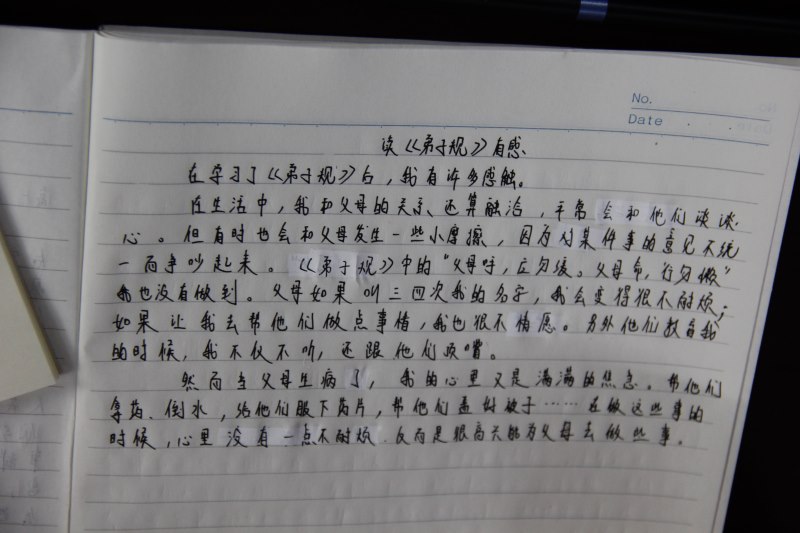 No.
Date
读《弟子规》自感、
在学习了《弟子规》后，我有许多感触。
在生活中，我和父母的关系还算融洽，平常会和他们谈谈
心。但有时也会和父母发生一些小摩擦，因为对某件事的意见不统
一而争吵起来。《弟子规》中的“父母呼，应勿缓。父母命，行勿懒”
我也没有做到。父母如果叫三四次我的名字，我会变得很不耐烦；
如果让我去帮他们做点事情，我也很不情愿。另外他们教育我
的时候，我不仅不听，还跟他们顶嘴。
然而当父母生病了，我的心里又是满满的焦急。帮他们
拿药、倒水，给他们服下药片，帮他们盖好被子……在做这些事的
时候，心里没有一点不耐烦.反而是很高兴能为父母去做些事。